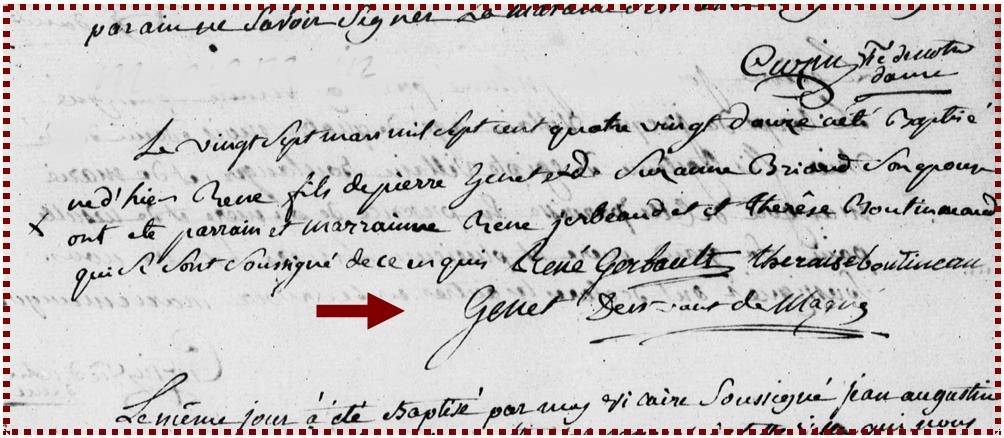 parain ne Savoir Signer La maraine
Cuzin Vre de notre
dame
Le vingt Sept mars mil Sept cent quatre vingt douze a été Baptisé
né d'hier René fils de pierre Genet et de Suzanne Briand Son epouse
ont ete parrain et marrainne René jerbeaud et et Therèse Boutineaud
qui Se Sont Soussigné de ce enquis René Gerbault theraise boutineau
Genet Desservant de Magné
Le même jour à été Baptisé par moy vicaire Soussigné jean augustin